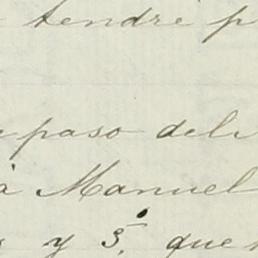 tendre p
paso deli
à Manuel
y 5. que